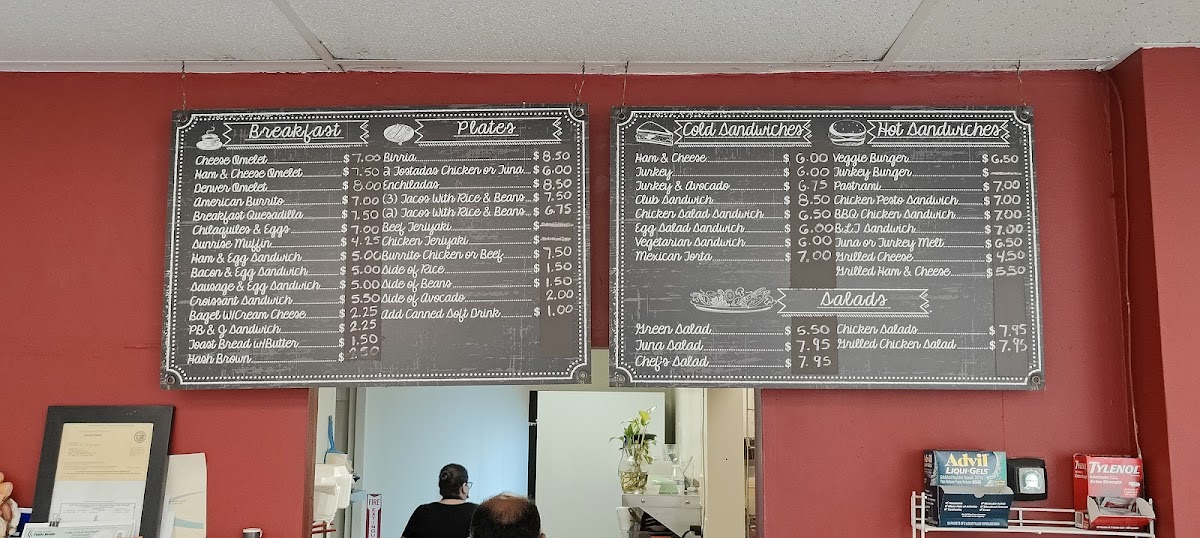 Breakfast
Cheese Omelet $ 7.00
Ham & Cheese Omelet $ 7.50
Denver Omelet $ 8.00
American Burrito $ 7.00
Breakfast Quesadilla $ 7.50
Chilaquiles & Eggs $ 7.00
Sunrise Muffin $ 4.25
Ham & Egg Sandwich $ 5.00
Bacon & Egg Sandwich $ 5.00
Sausage & Egg Sandwich $ 5.00
Croissant Sandwich $ 5.50
Bagel W/Cream Cheese $ 2.25
PB & J Sandwich $ 2.25
Toast Bread w/Butter $ 1.50
Hash Brown $ 2.50
Plates
Birria $ 8.50
2 Tostadas Chicken or Tuna $ 6.00
Enchiladas $ 8.50
(3) Tacos With Rice & Beans $ 7.50
(2) Tacos With Rice & Beans $ 6.75
Beef Teriyaki $
Chicken Teriyaki $
Burrito Chicken or Beef $ 7.50
Side of Rice $ 1.50
Side of Beans $ 1.50
Side of Avocado 2.00
Add Canned Soft Drink $ 1.00
Cold Sandwiches
Ham & Cheese $ 6.00
Turkey $ 6.00
Turkey & Avocado $ 6.75
Club Sandwich $ 8.50
Chicken Salad Sandwich $ 6.50
Egg Salad Sandwich $ 6.00
Vegetarian Sandwich $ 6.00
Mexican Torta $ 7.00
Hot Sandwiches
Veggie Burger $ 6.50
Turkey Burger $
Pastrami $ 7.00
Chicken Pesto Sandwich $ 7.00
BBQ Chicken Sandwich $ 7.00
B.L.T Sandwich $ 7.00
Tuna or Turkey Melt $ 6.50
Grilled Cheese $ 4.50
Grilled Ham & Cheese $ 5.50
Salads
Green Salad $ 5.50
Tuna Salad $ 7.95
Chef's Salad $ 7.95
Chicken Salads $ 7.95
Grilled Chicken Salad $ 7.95
FIRE
Advil
LIQUI-GELS
TYLENOL